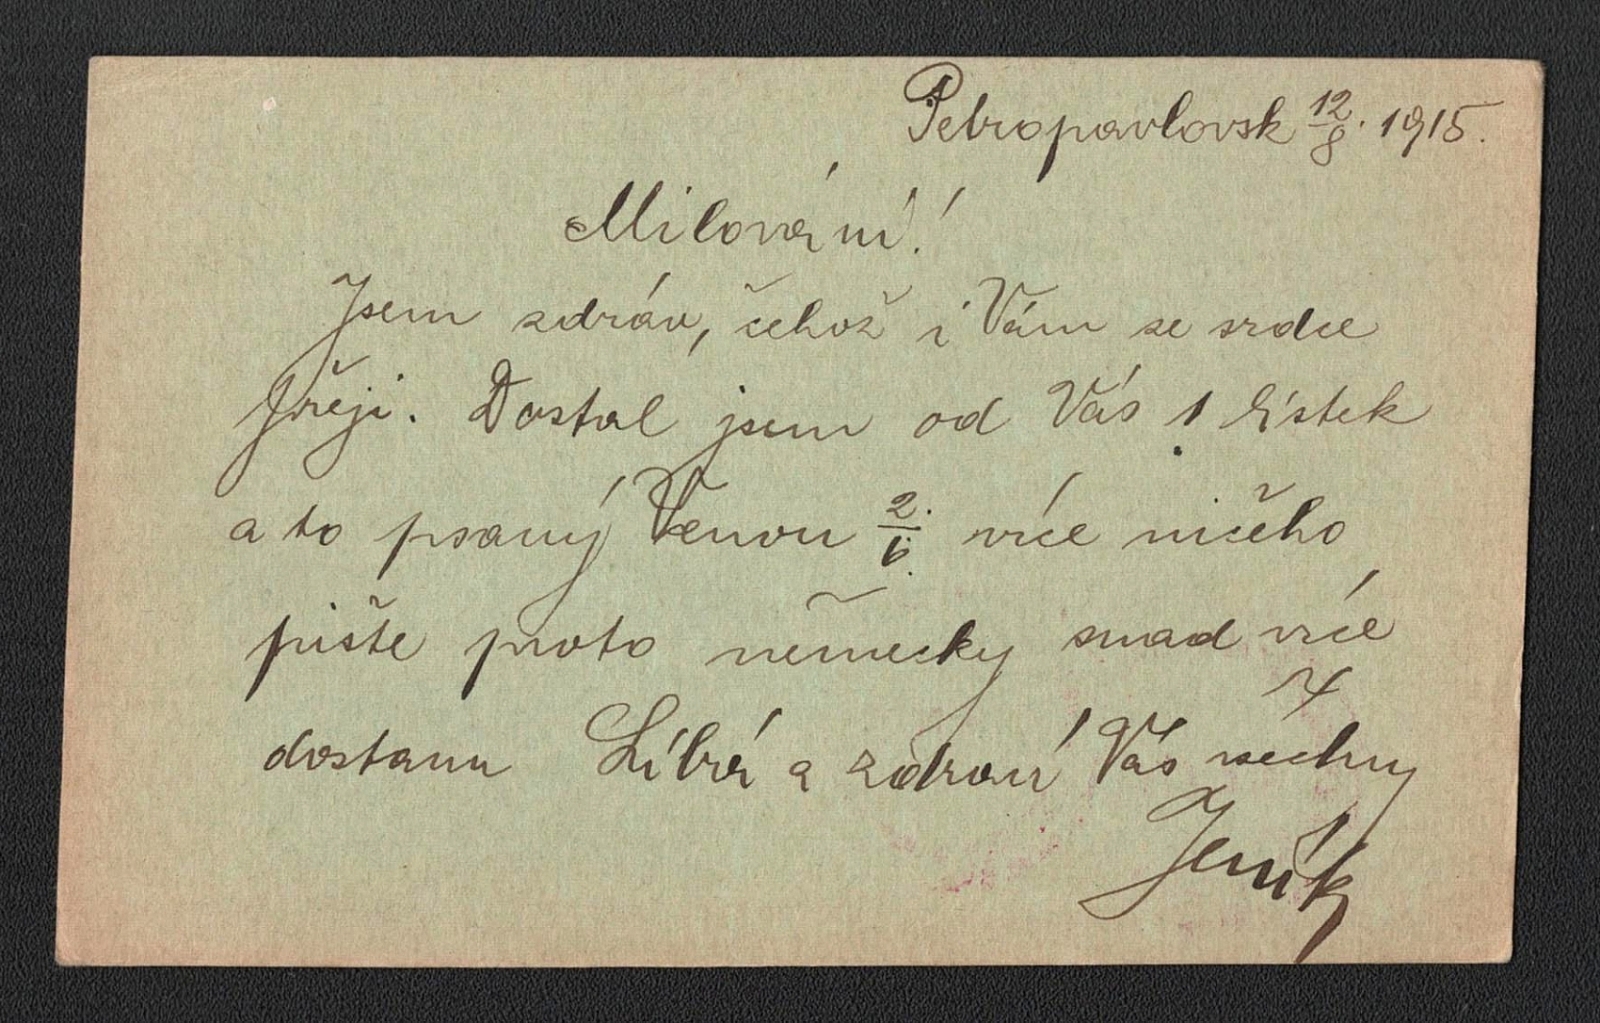 Petropavlovsk 12/8. 1915.
Milování!
Jsem zdráv, čehož i Vám ze srdce
přeji. Dostal jsem od Vás 1 lístek
a to psaný Venou 2./6. více ničeho
pište proto německy snad více
dostanu Líbá a zdraví Vás všechny
Jeník